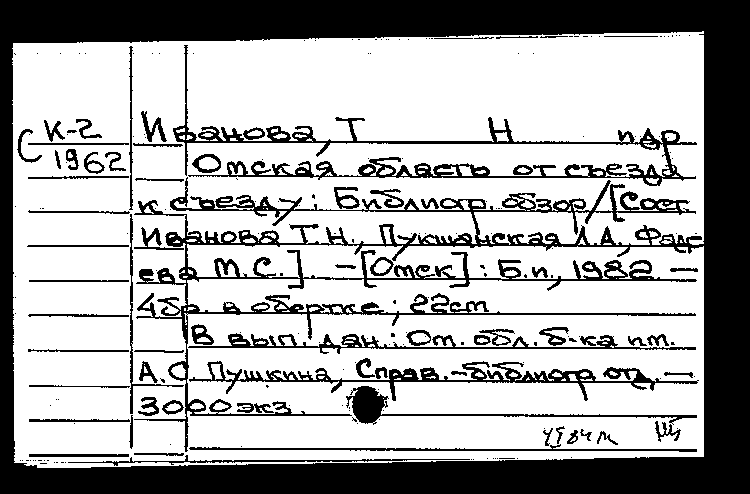 С К-2 Иванова, Т Н и др
1962 Омская область от съезда
к съезду : Библиогр. обзор / [Сост.
Иванова Т.Н., Пукшанская Л.А., Фаде
ева М.С.]. — [Омск] : Б.и., 1982. —
4 бр. в обертке ; 22 ст.
В вып. дан.: Ом. обл. б-ка им.
А.С. Пушкина, Справ.-библиогр. отд. —
3000 экз.